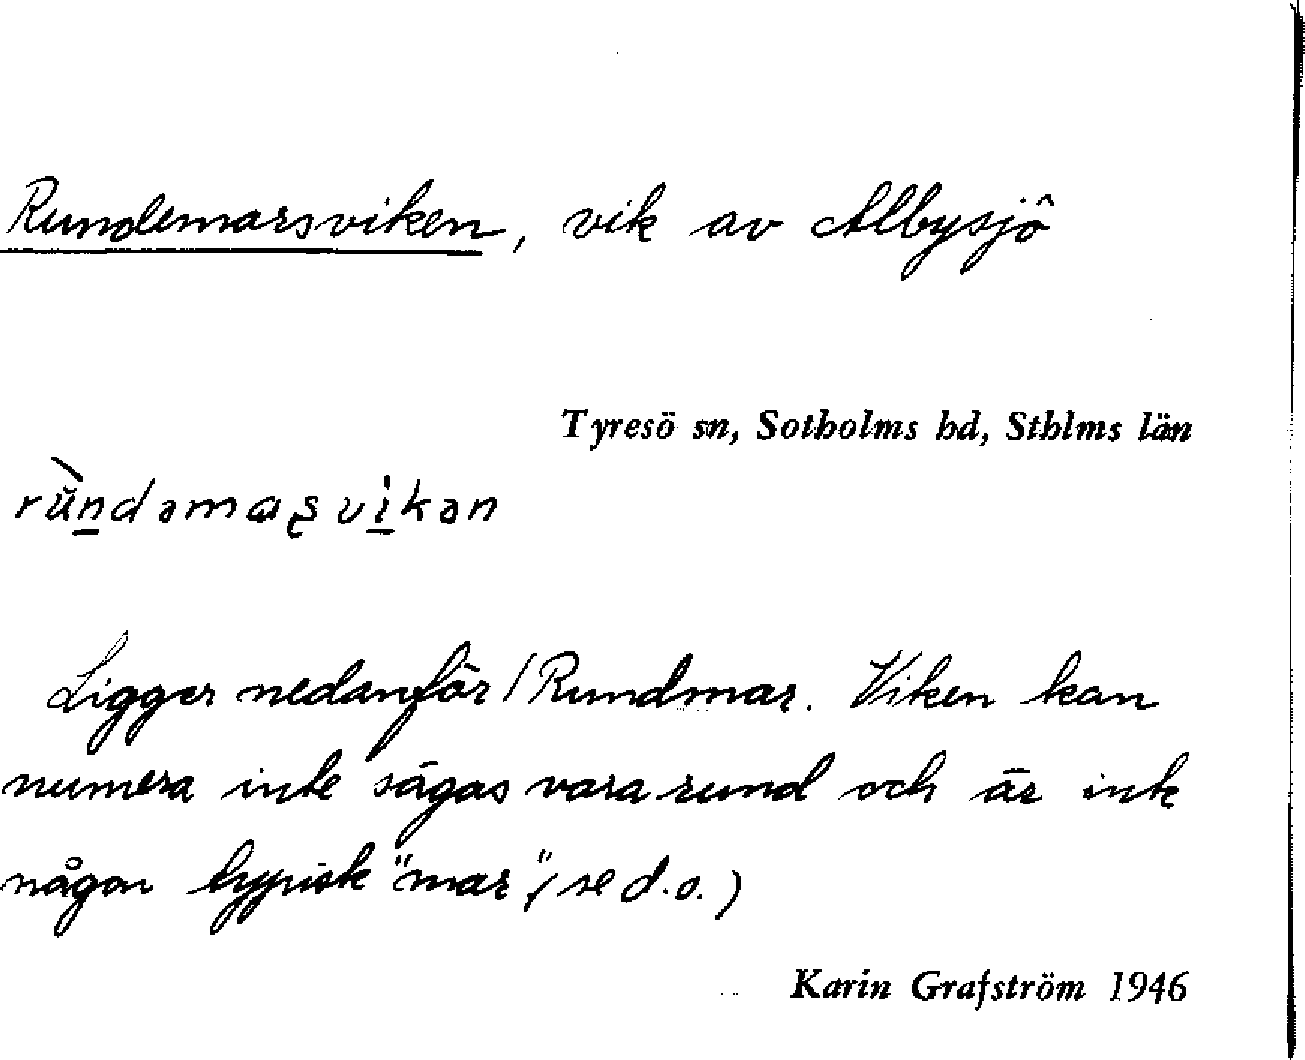 Rundemarsviken, vik av Albysjö
Tyresö sn, Sotholms hd, Sthlms län
rùndəmaʂvikən
Ligger nedanför / Rundmar. Viken kan
numera inte sägas vara rund och är inte
någon typisk "mar", (se d.o.)
Karin Grafström 1946